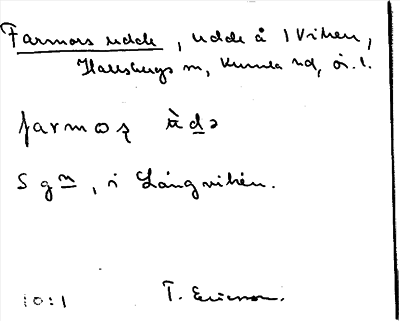 Farmors udde, udde å Viken,
Hallsbergs sn, Kumla hd, ör. l.
farmoʂ ùdə
S g m, i Långviken.
10:1 T. Ericsson.